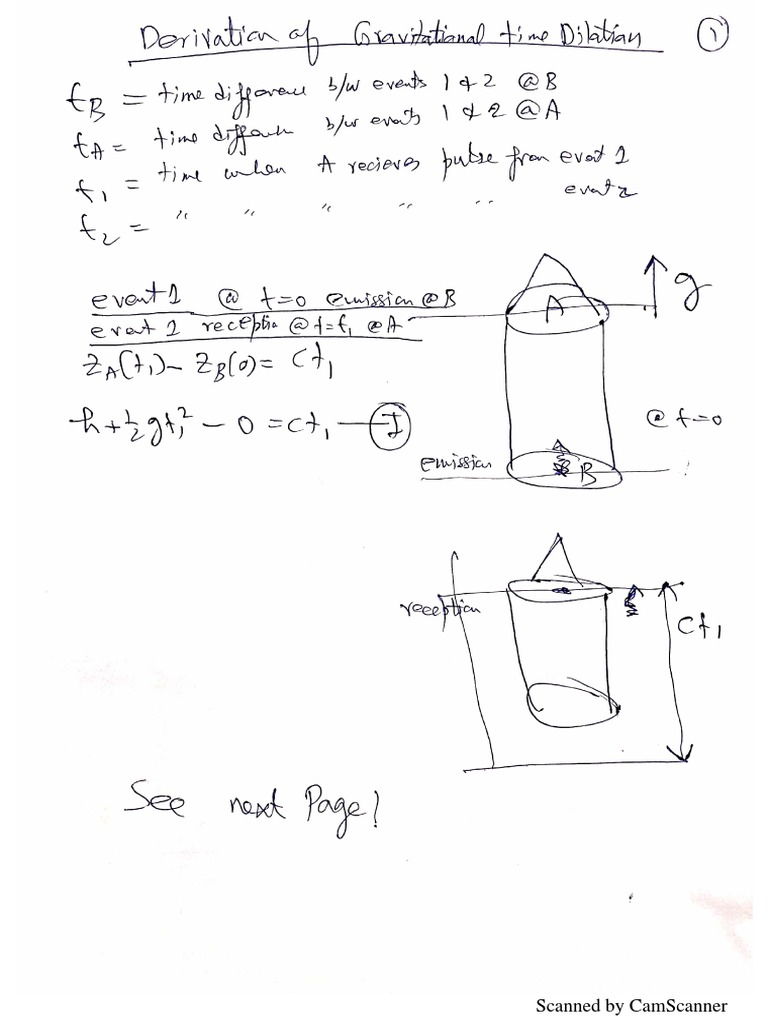 Derivation of Gravitational time Dilation ①
t_B = time difference b/w events 1 & 2 @ B
t_A = time difference b/w events 1 & 2 @ A
t_1 = time when A recieves pulse from event 1
t_2 = " " " " " event 2
event 1 @ t=0 emission @ B
event 1 reception @ t=t_1 @ A
Z_A(t_1) - Z_B(0) = Ct_1
h + 1/2 gt_1^2 - 0 = Ct_1 — Ⓘ
A
g
@ t=0
emission
B
reception
Ct_1
See next Page!
Scanned by CamScanner